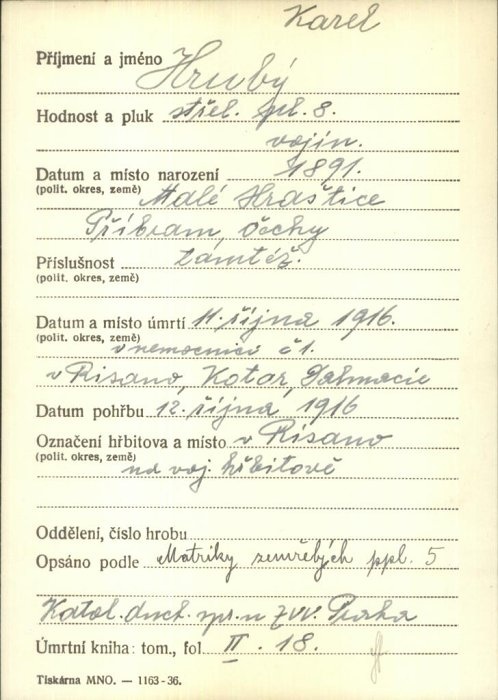 Karel
Příjmení a jméno Hrubý
Hodnost a pluk střel. pl. 8.
vojín.
Datum a místo narození 1891.
(polit. okres, země) Malé Hraštice
Příbram, Čechy
Příslušnost tamtéž.
(polit. okres, země)
Datum a místo úmrtí 11. října 1916.
(polit. okres, země) v nemocnici č 1.
v Risano, Kotor, Dalmacie
Datum pohřbu 12. října, 1916
Označení hřbitova a místo v Risano
(polit. okres, země) na voj. hřbitově
Oddělení, číslo hrobu
Opsáno podle Matriky zemřelých ppl. 5
Katol. duch. spr. u ZVV. Praha
Úmrtní kniha: tom., fol II. 18.
Tiskárna MNO. — 1163-36.